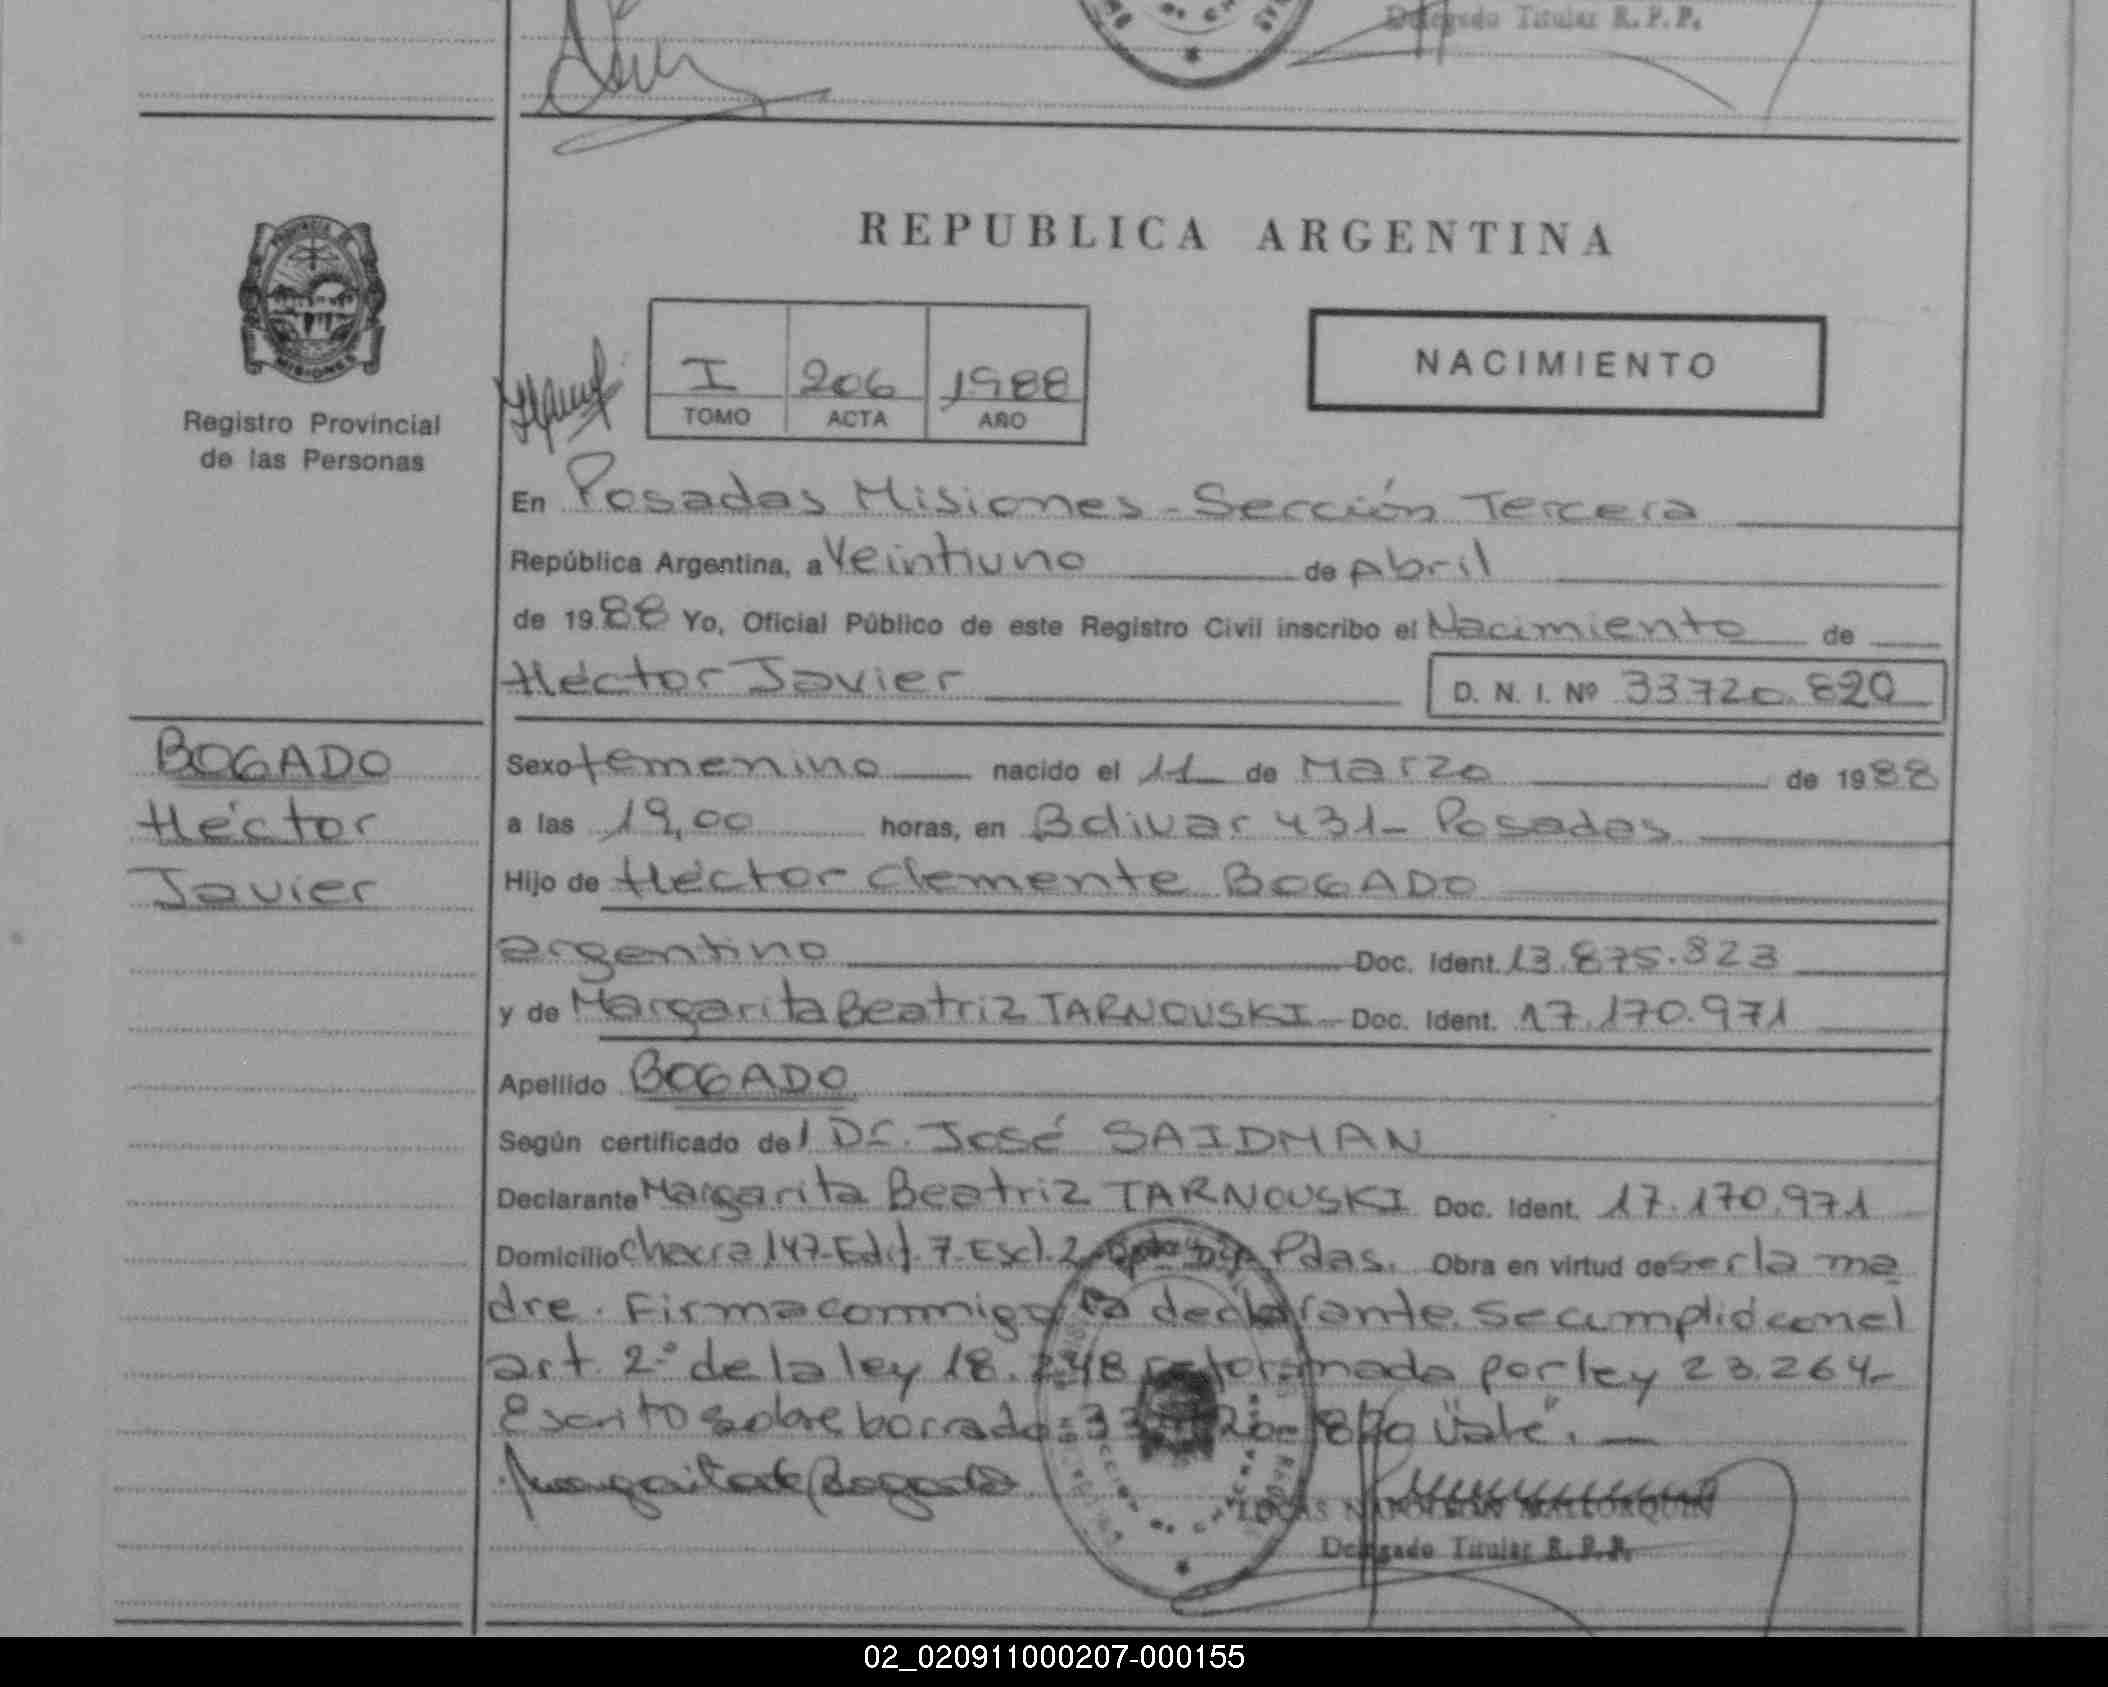 Delegado Titular R.P.P.
REPUBLICA ARGENTINA
PROVINCIA DE
MISIONES
Registro Provincial
de las Personas
I 206 1988
TOMO ACTA AÑO
NACIMIENTO
En Posadas Misiones - Sección Tercera
República Argentina, a Veintiuno de Abril
de 1988 Yo, Oficial Público de este Registro Civil inscribo el Nacimiento de
Héctor Javier D. N. I. Nº 33720.820
BOGADO
Héctor
Javier
Sexo femenino nacido el 11 de Marzo de 1988
a las 19,00 horas, en Bolivar 431- Posadas
Hijo de Héctor Clemente BOGADO
argentino Doc. Ident. 13.875.823
y de Margarita Beatriz TARNOUSKI Doc. Ident. 17.170.971
Apellido BOGADO
Según certificado del Dr. José SAIDMAN
Declarante Margarita Beatriz TARNOUSKI Doc. Ident. 17.170.971
Domicilio Chacra 147-Edif. 7-Escl. 2 Pdas. Obra en virtud de ser la ma
dre. Firma conmigo la declarante. Se cumplió con el
art. 2º de la ley 18.248 reformada por ley 23.264-
Escrito sobre borrado: "Vale".
Margarita de Bogado
LUCAS NAPOLEON MALLORQUIN
Delegado Titular R.P.P.
02_020911000207-000155